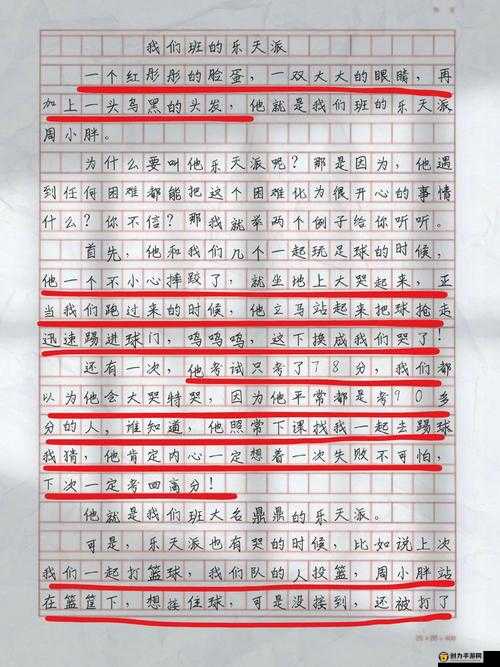 我们班的乐天派
一个红彤彤的脸蛋，一双大大的眼睛，再
加上一头乌黑的头发，他就是我们班的乐天派
周小胖。
为什么要叫他乐天派呢？那是因为，他遇
到任何困难都能把这个困难化为很开心的事情
什么？你不信？那我就举两个例子给你听听。
首先，他和我们几个一起玩足球的时候，
他一个不小心摔跤了，就坐地上大哭起来，正
当我们跑过来的时候，他立马站起来把球抢走
迅速踢进球门，呜呜呜，这下换成我们哭了！
还有一次，他考试只考了78分，我们都
以为他会大哭特哭，因为他平常都是考90多
分的人，谁知道，他照常下课找我一起去踢球
我猜，他肯定内心一定想着一次失败不可怕，
下次一定考回高分！
他就是我们班大名鼎鼎的乐天派。
可是，乐天派也有哭的时候，比如说上次
我们一起打篮球，我们队的人投篮，周小胖站
在篮筐下，想接住球，可是没接到，还被打了
创力手游网